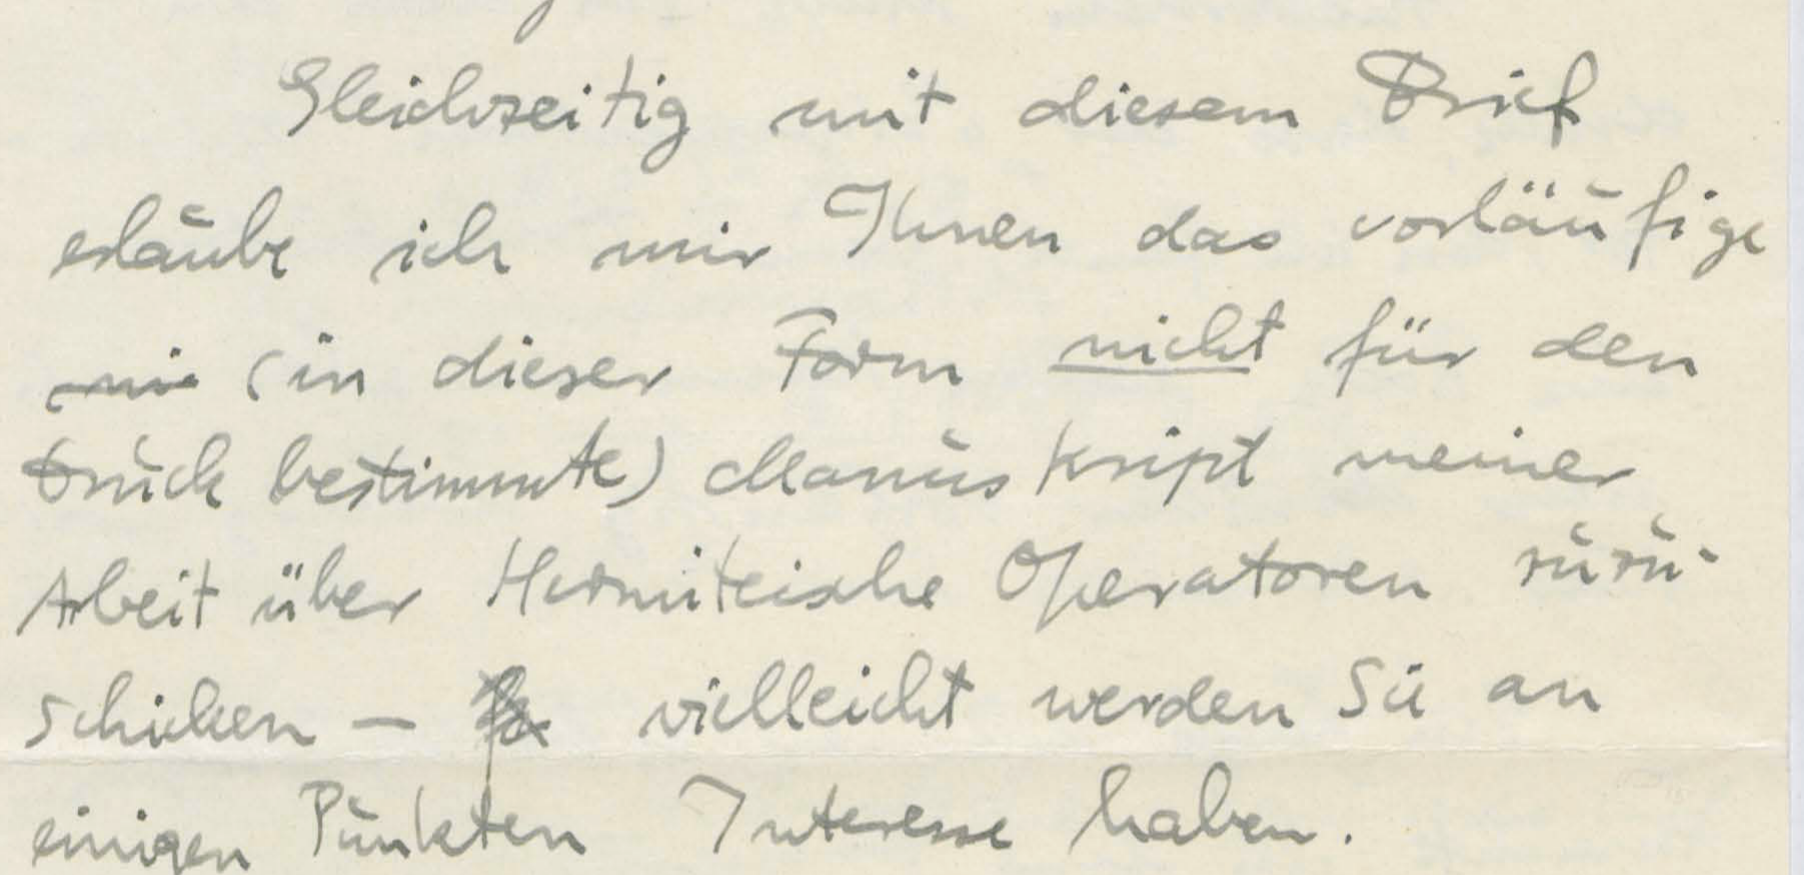 Gleichzeitig mit diesem Brief
erlaube ich mir Ihnen das vorläufige
(in dieser Form nicht für den
Druck bestimmte) Manuskript meiner
Arbeit über Hermiteische Operatoren zuzu-
schicken — vielleicht werden Sie an
einigen Punkten Interesse haben.